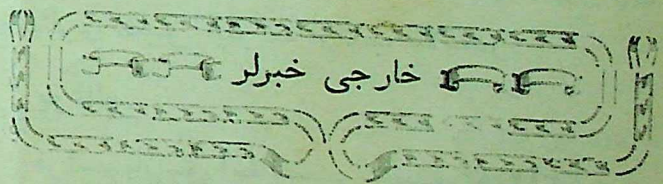 خارجی خبرلر